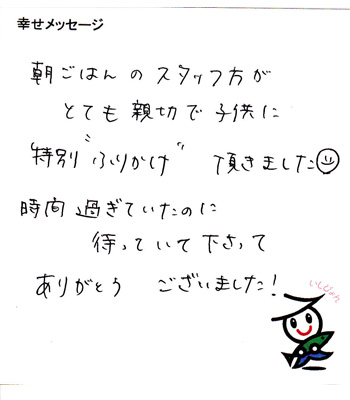 幸せメッセージ
朝ごはんのスタッフ方が
とても親切で子供に
"特別"ふりかけ" 頂きました
時間過ぎていたのに
待っていて下さって
ありがとう ございました!